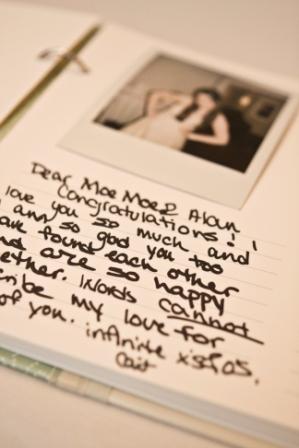 Dear Moe Moe & Alan
Congratulations! I
love you so much and
am so glad you too
have found each other
and are so happy
together. Words cannot
describe my love for
of you. infinite x's & o's.
Cait